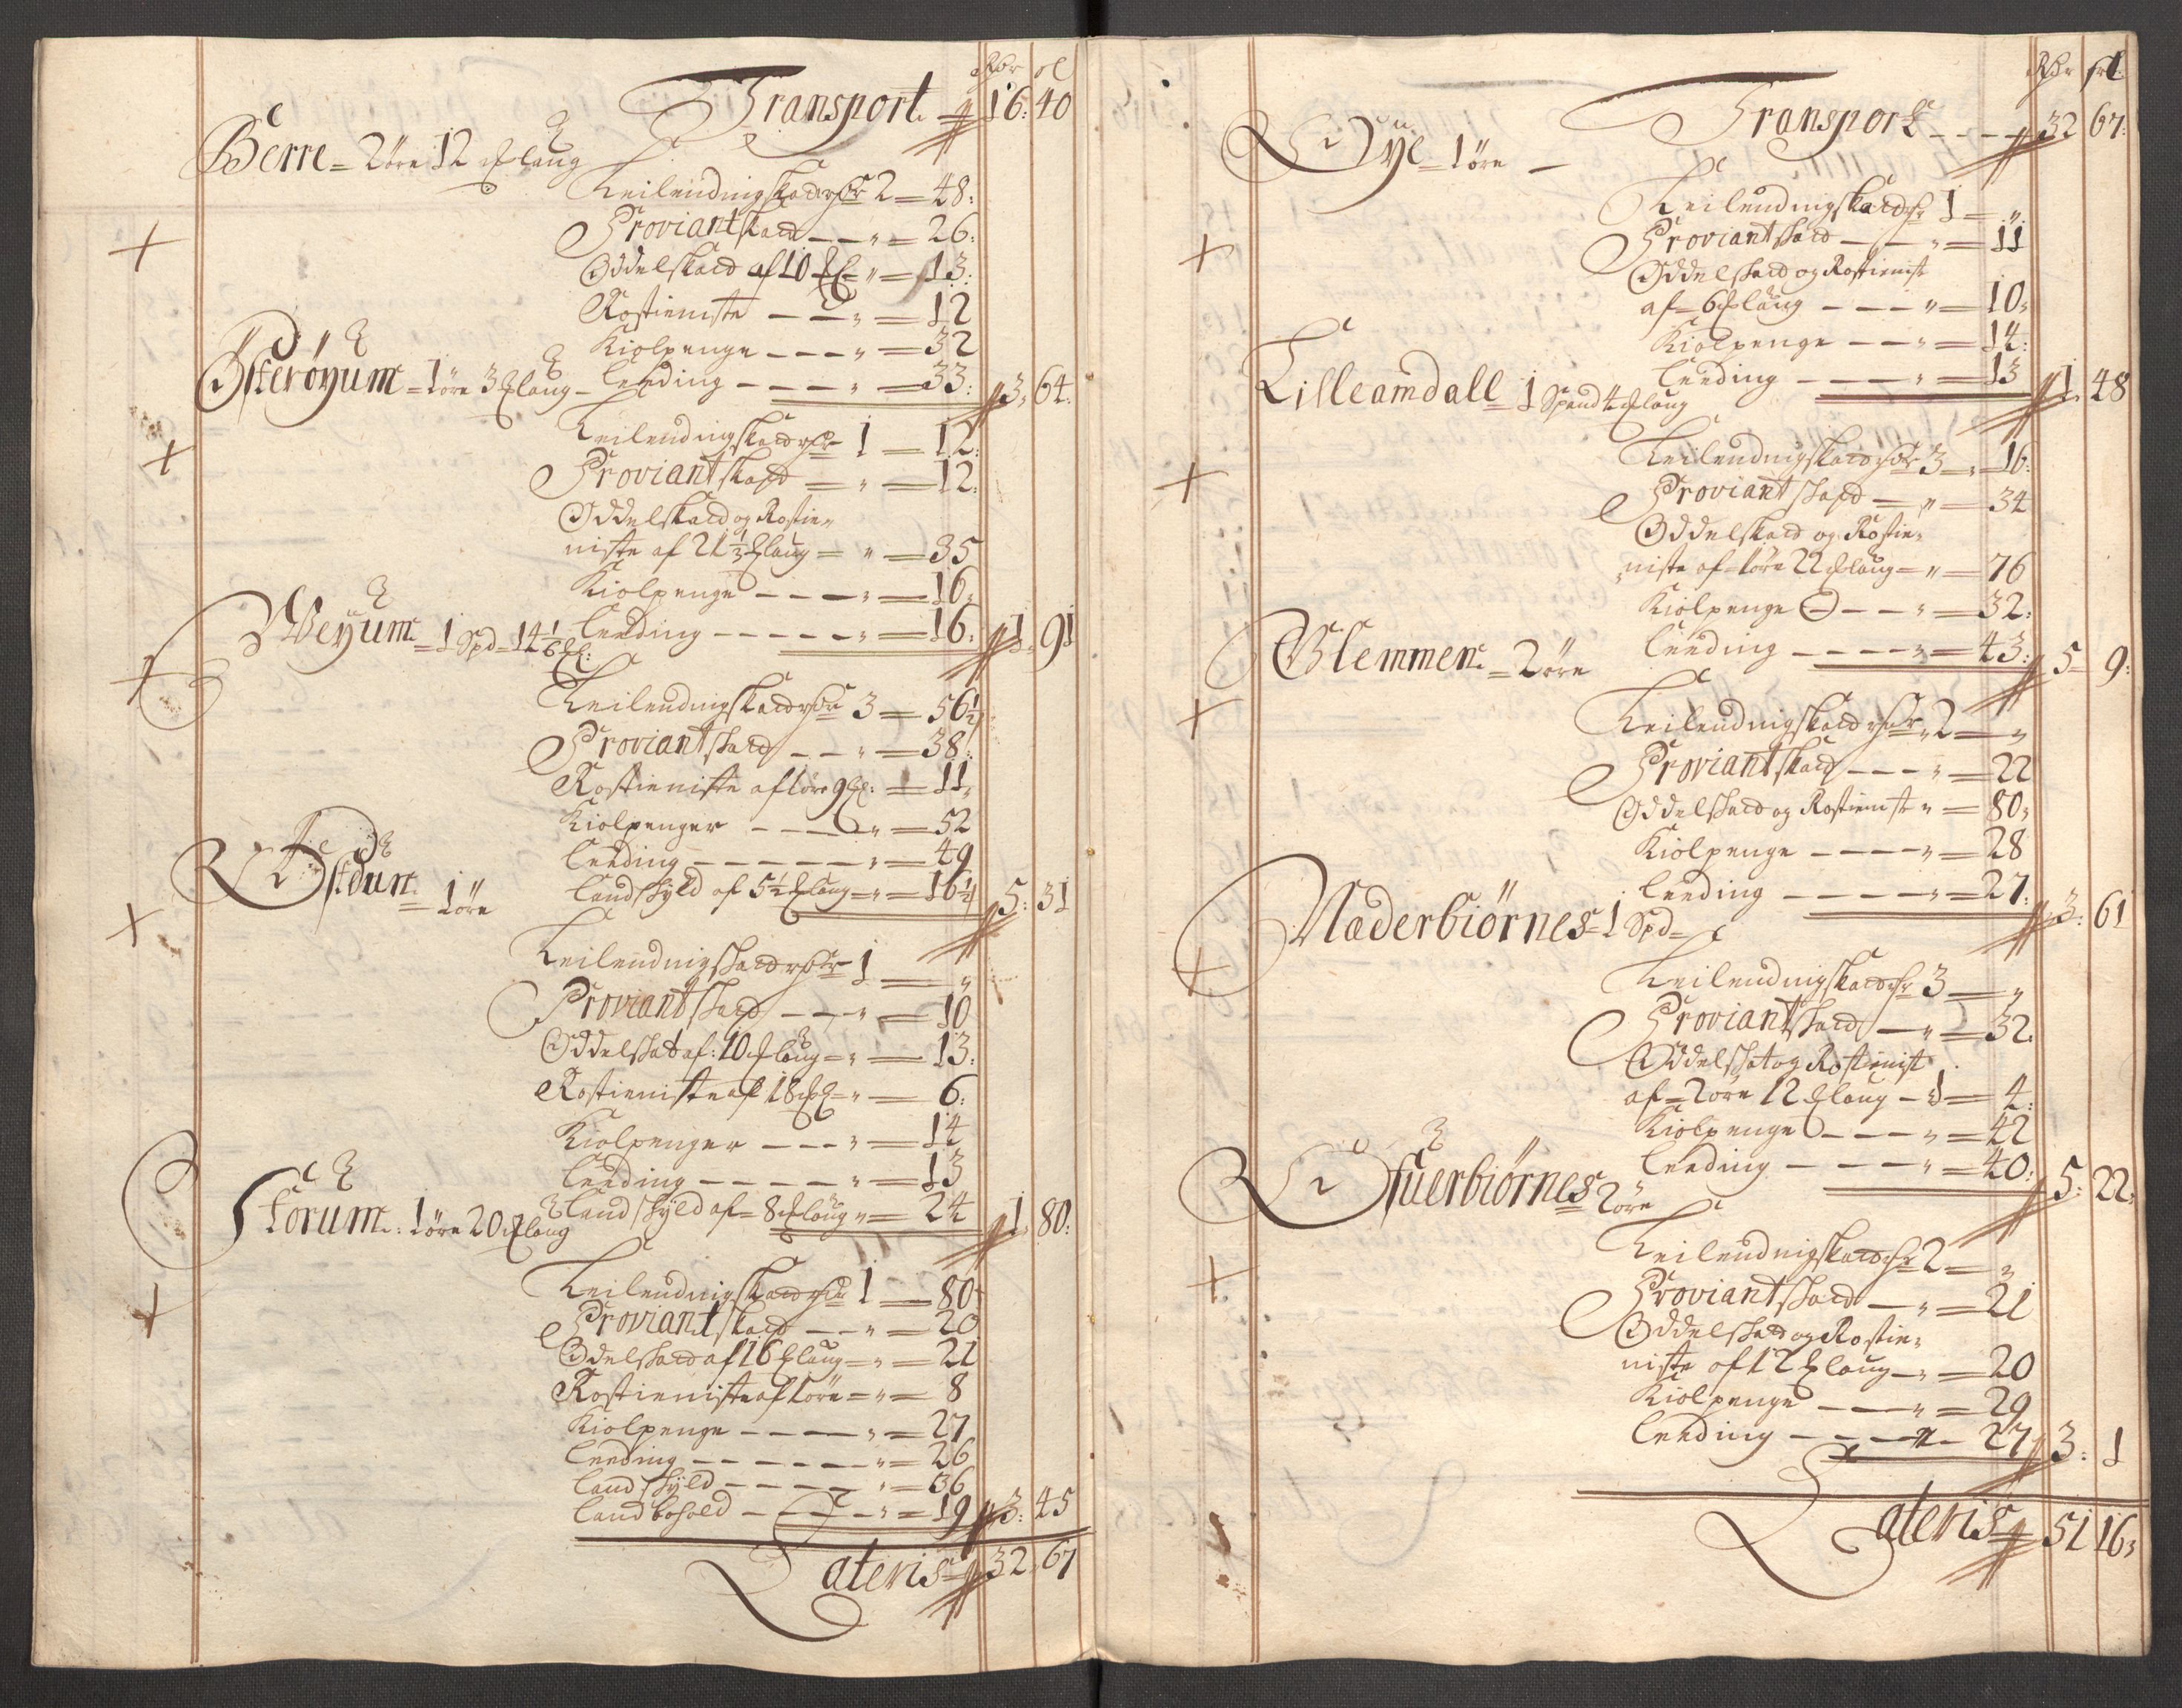 Rdr sl
Transport 16: 40
Berre = 2 øre 12 Mklaug
Leilendingskatt Rdr 2 = 48:
Proviantskatt - - „ = 26:
Oddelskatt af 10 Mkl „ = 13:
Rostieniste - - „ = 12
Kiolpenge - - - „ = 32
Leeding - - - - „ = 33: 3, 64.
Østerøyum = 1 øre 3 Mklaug -
Leilendingskatt Rdr 1 = 12:
Proviantskatt = „ = 12:
Oddelskatt og Rostie=
niste af 21 1/3 Mklaug = „ = 35
Kiolpenge - - - „ = 16:
Leeding - - - - - „ = 16: 1. 91
Weyum = 1 Spd = 14 1/6 Mkl:
Leilendingskatt Rdr 3 = 56 1/2
Proviantskatt - - „ = 38:
Rostieniste af 1 øre 9 Mkl: = 11,
Kiolpenger - - - „ = 52
Leeding - - - - - - „ = 49
Landskyld af 5 1/2 Mklaug = „ = 16 1/2 5: 31
Østdun = 1 øre
Leilendingskatt Rdr 1 = „
Proviantskatt - - - „ = 10
Oddelskat af: 10 Mklaug = „ = 13:
Rostieniste af 18 Mkl = „ = 6:
Kiolpenger - - - „ = 14
Leeding - - - - - „ = 13
Landskyld af = 8 Mklaug „ = 24 1, 80:
Storum: 1 øre 20 Mklaug
Leilendingskatt Rdr 1 = 80
Proviantskatt - - „ = 20
Odelskatt af 16 Mklaug = „ = 21
Rostieniste af 1 øre = „ = 8
Kiolpenge - - - - „ = 27
Leeding - - - - - - „ = 26
Landskyld - - - - - „ = 36
Landbohold - - - - „ = 19 3: 45
Lateris 32, 67
Rdr sl
Transport - - - - 32 67:
= 1 øre -
Leilendingskatt Rdr 1 = „
Proviantskatt - - „ = 11
Oddelskatt og Rostienist
af = 6 Mklaug - - - „ = 10:
Kiolpenge - - - „ = 14:
Leeding - - - - „ = 13 1. 48
Lilleamdall = 1 Spand 4 Mklaug
Leilendingskatt Rdr 3 = 16:
Proviantskatt = „ = 34
Oddelskatt og Rostie=
niste af 1 øre 22 Mklaug = „ = 76
Kiolpenge - - - „ = 32:
Leeding - - - - „ = 43: 5 - 9:
Blemmen = 2 øre
Leilendingskatt Rdr 2 = „
Proviantskatt - - - „ = 22
Oddelskatt og Rostienist „ = 80,
Kiolpenge - - - - „ = 28
Leeding - - - - - „ = 27: 3: 61
Næderbiørnes = 1 Spd =
Leilendingskatt Rdr 3 = „
Proviantskatt - „ = 32.
Oddelskat og Rostienist
af = 2 øre 12 Mklaug - 1 = 4.
Kiolpenge - - - „ = 42
Leeding - - - - „ = 40: 5: 22,
Øfuerbiørnes 2 øre
Leilendingskatt Rdr 2 = „
Proviantskatt - „ = 21
Oddelskatt og Rostie=
niste af 12 Mklaug - „ = 20
Kiolpenge - - - „ = 29
Leeding - - - „ - 27 3: 1
Lateris 51 16,